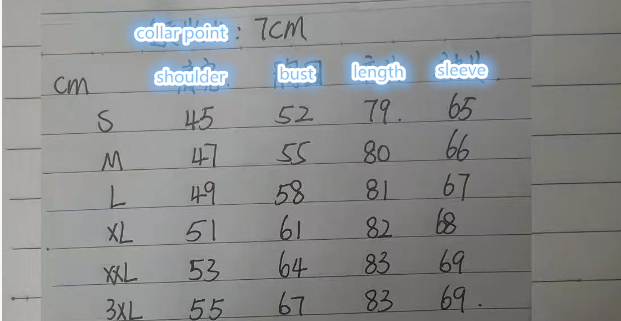 collar point : 7cm
cm shoulder bust length sleeve
S 45 52 79. 65
M 47 55 80 66
L 49 58 81 67
XL 51 61 82 68
XXL 53 64 83 69
3XL 55 67 83 69.